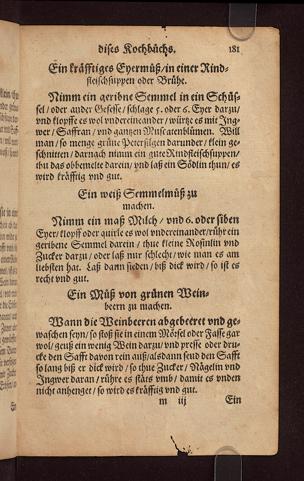 dises Kochbůchs. 181
Ein kräfftiges Eyermůß/in einer Rind-
fleischsuppen oder Brühe.
Nimm ein geribne Semmel in ein Schüs-
sel/ oder ander Gefesse/ schlage 5. oder 6. Eyer darzu/
vnd klopffe es wol vndereinander/ würtze es mit Jng-
wer/ Saffran/ vnd gantzen Muscatenblümen. Will
man/ so menge grüne Petersilgen darunder/ klein ge-
schnitten/ darnach nimm ein gute Rindfleischsuppen/
thu das obbemelte darein/ vnd laß ein Södlin thun/ es
wird kräfftig vnd gut.
Ein weiß Semmelmůß zu
machen.
Nimm ein maß Milch/ vnd 6. oder siben
Eyer/ klopff oder quirle es wol vndereinander/rühr ein
geribene Semmel darein/ thue kleine Rosinlin vnd
Zucker darzu/ oder laß nur schlecht/ wie man es am
liebsten hat. Laß dann sieden/ biß dick wird/ so ist es
recht vnd gut.
Ein Můß von grünen Wein-
beern zu machen.
Wann die Weinbeeren abgebeeret vnd ge-
waschen seyn/ so stoß sie in einem Mörsel oder Fasse gar
wol/ geuß ein wenig Wein darzu/ vnd presse oder dru-
cke den Safft davon rein auß/alsdann send den Safft
so lang biß er dick wird/ so thue Zucker/ Nägelin vnd
Jngwer daran/ rühre es stårs vmb/ damit es vnden
nicht anhenget/ so wird es kräfftig vnd gut.
m iij Ein